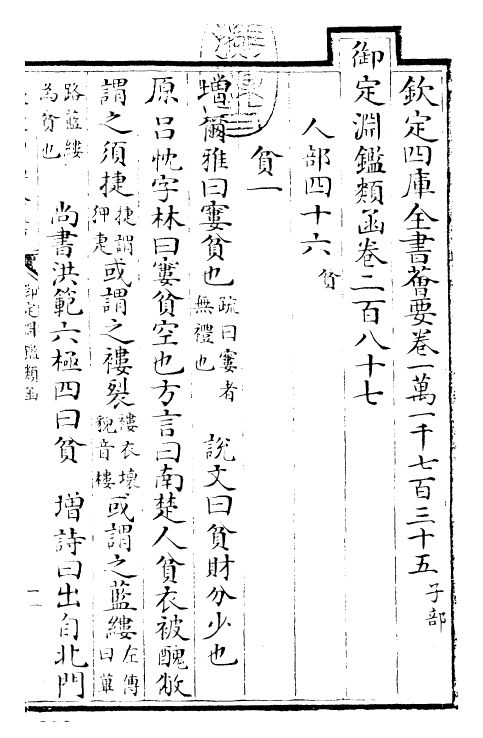 欽定四庫全書薈要卷一萬一千七百三十五子部
御定淵鑑類函卷二百八十七
人部四十六貧
貧一
增爾雅曰窶貧也疏曰窶者無禮也　説文曰貧財分少也
原呂忱字林曰窶貧空也方言曰南楚人貧衣被醜敝
謂之須捷捷謂狎疌或謂之褸裂褸衣壞貌音樓或謂之藍縷左傳曰蓽
路藍縷為貧也　尚書洪範六極四曰貧　增詩曰出自北門
御定淵鑑類函
一